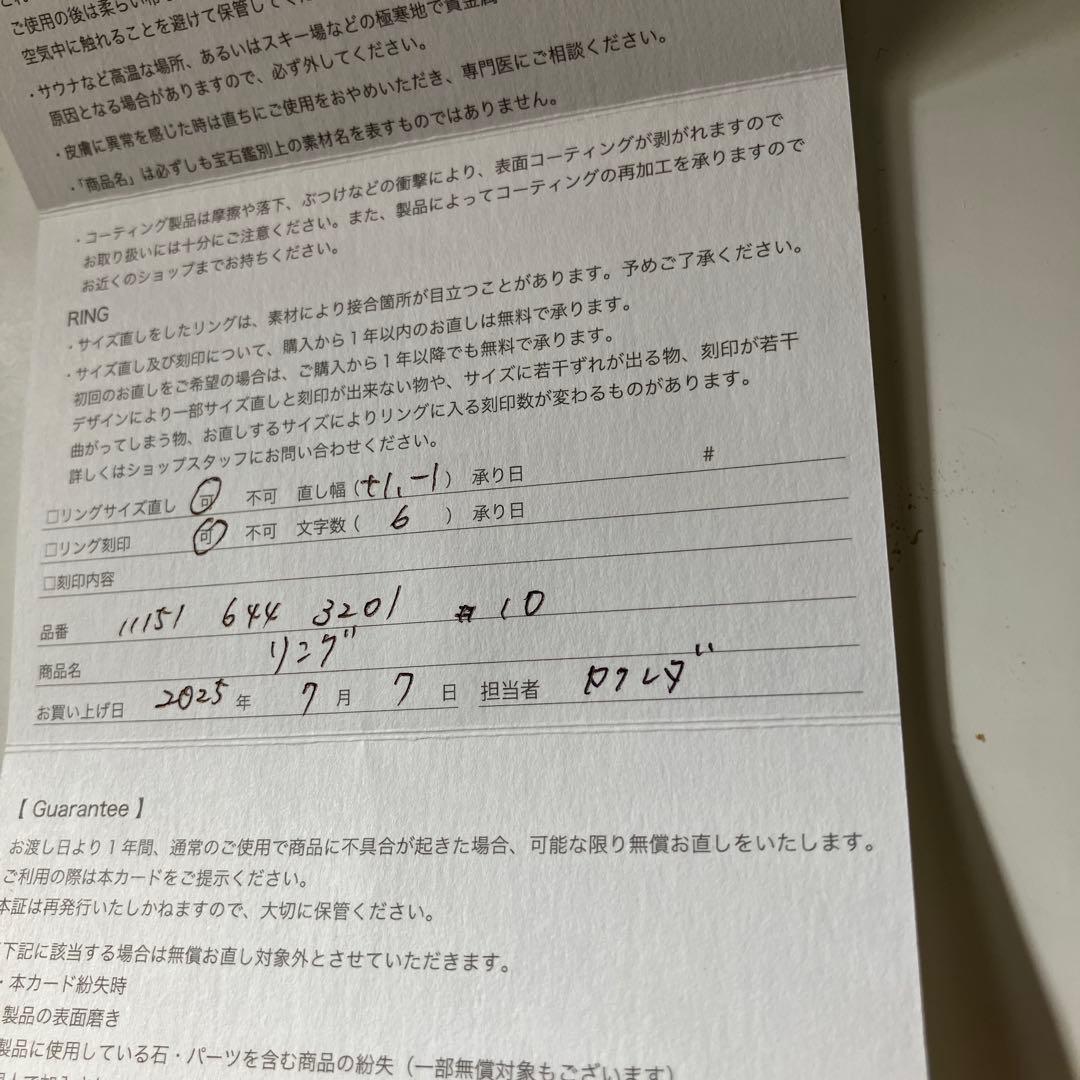 ご使用の後は柔らい布
空気中に触れることを避けて保管してく
・サウナなど高温な場所、あるいはスキー場などの極寒地で貴金属
原因となる場合がありますので、必ず外してください。
・皮膚に異常を感じた時は直ちにご使用をおやめいただき、専門医にご相談ください。
・「商品名」は必ずしも宝石鑑別上の素材名を表すものではありません。
・コーティング製品は摩擦や落下、ぶつけなどの衝撃により、表面コーティングが剥がれますので
お取り扱いには十分にご注意ください。また、製品によってコーティングの再加工を承りますので
お近くのショップまでお持ちください。
RING
・サイズ直しをしたリングは、素材により接合箇所が目立つことがあります。予めご了承ください。
・サイズ直し及び刻印について、購入から1年以内のお直しは無料で承ります。
初回のお直しをご希望の場合は、ご購入から1年以降でも無料で承ります。
デザインにより一部サイズ直しと刻印が出来ない物や、サイズに若干ずれが出る物、刻印が若干
曲がってしまう物、お直しするサイズによりリングに入る刻印数が変わるものがあります。
詳しくはショップスタッフにお問い合わせください。
□リングサイズ直し 可 不可 直し幅(+1,-1) 承り日 #
□リング刻印 可 不可 文字数( 6 ) 承り日
□刻印内容
品番 11151 644 3201 #10
商品名 リング
お買い上げ日 2025年 7月 7日 担当者
【 Guarantee 】
お渡し日より1年間、通常のご使用で商品に不具合が起きた場合、可能な限り無償お直しをいたします。
ご利用の際は本カードをご提示ください。
本証は再発行いたしかねますので、大切に保管ください。
下記に該当する場合は無償お直し対象外とさせていただきます。
・本カード紛失時
製品の表面磨き
製品に使用している石・パーツを含む商品の紛失(一部無償対象もございます)